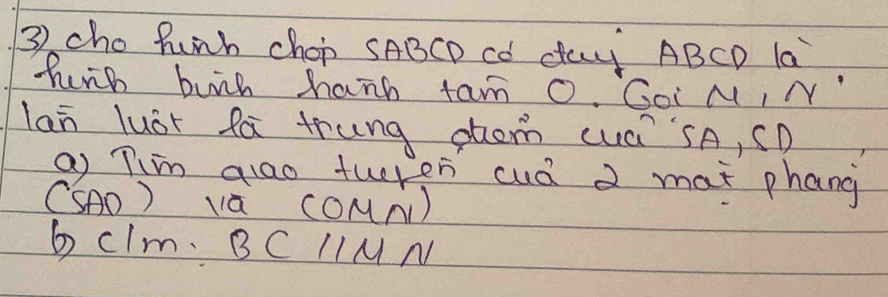 3) cho hình chóp SABCD có đáy ABCD là
hình bình hành tâm O. Gọi M, N
lần lượt là trung điểm của SA, SD
a) Tìm giao tuyến của 2 mặt phẳng
(SAD) và (OMN)
b) c/m. BC // MN